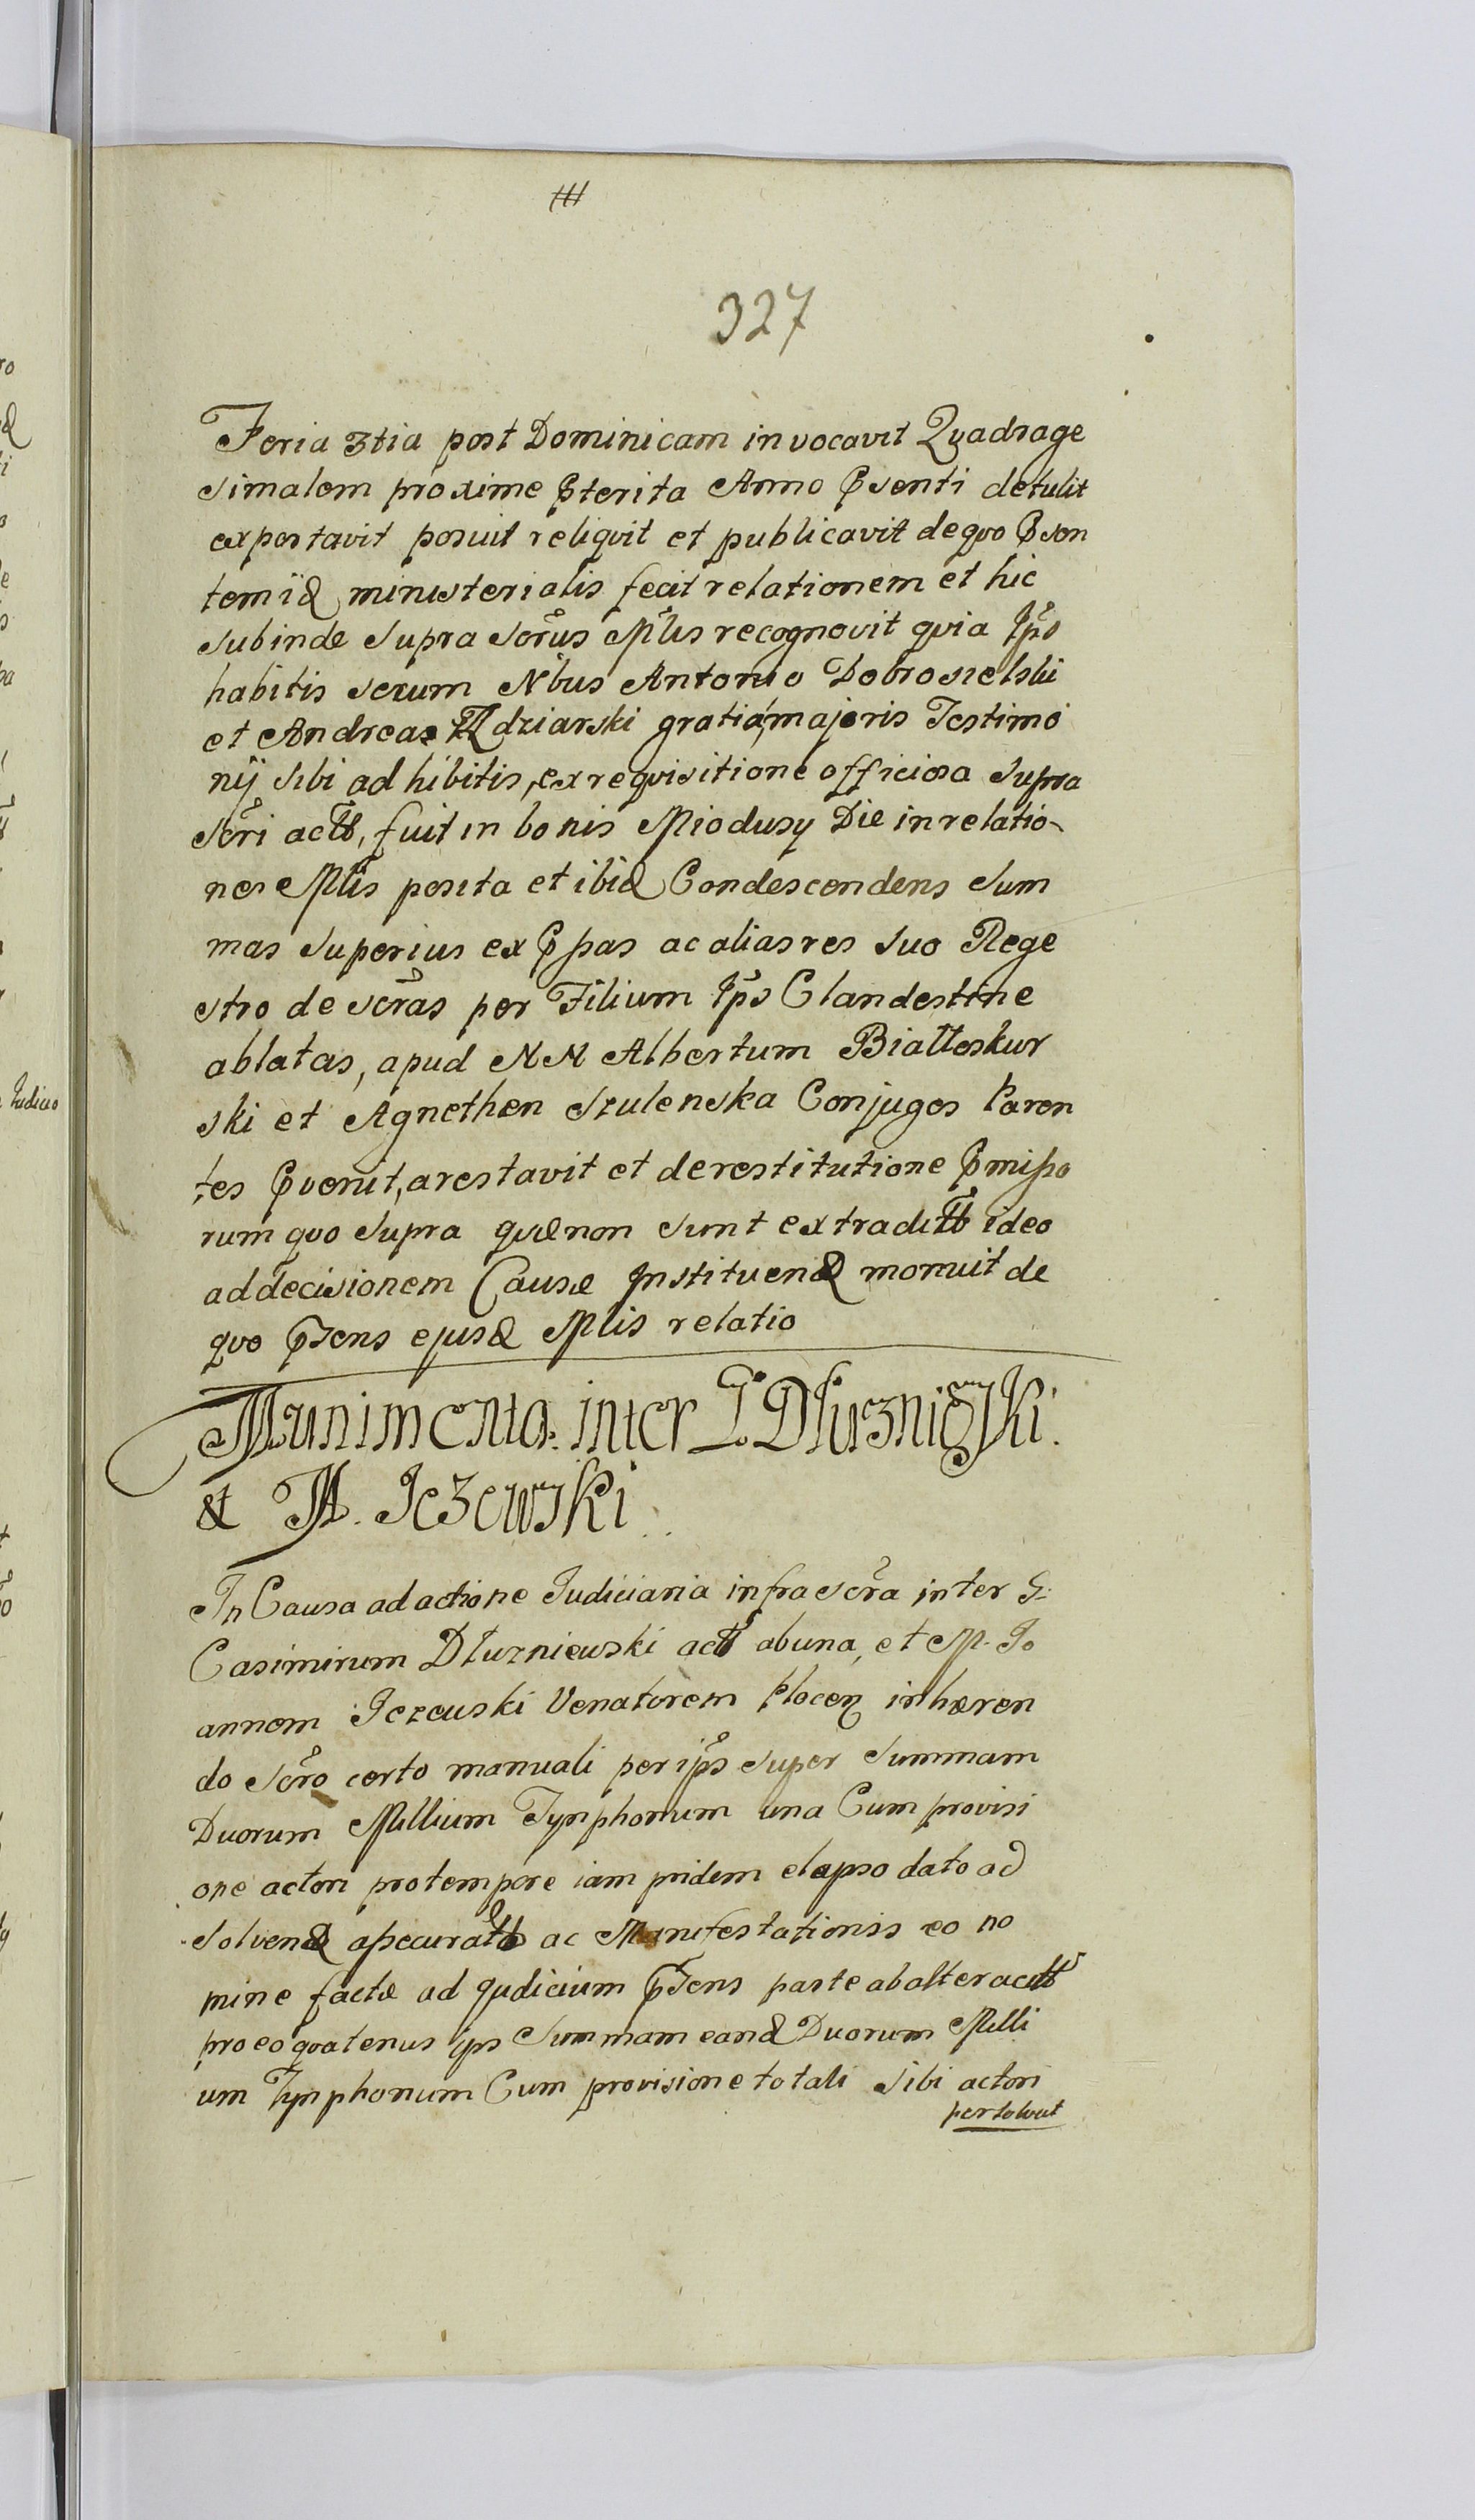 327
Feria 3tia post Dominicam invocavit Quadrage
simalem proxime pterita Anno psenti detulit
exportavit posuit reliquit et publicavit de quo psen
tem iid ministerialis fecit relationem et hic
subinde supra scrûs Mlis recognovit quia
habitis secum Nbus Antonio Dobrosielski
et Andreae Zdziarski gratia majoris Testimo
nij sibi ad hibitis, ex requisitione officiosa supra
scri actb, fuit in bonis Miodusy Die in relatio-
nes Mlis posita et ibid Condescendens Sum
mas superius ex pssas ac alias res suo Rege
stro de scras per Filium Ips Clandestine
ablatas, apud NN Albertum Bialloskur
ski et Agnethen Szulenska Conjuges Paren
tes pvenit, arestavit et de restitutione pmisso
rum quo supra quæ non sunt ex traditb ideo
ad decisionem Causæ Instituend monuit de
quo psens ejusd Mlis relatio
Munimenta inter G. Dłuzniewski
& M. Jezewski
In Causa ad actione Judiciaria infra scra inter G.
Casimirum Dłuzniewski actb ab una, et M. Jo
annem Jezewski Venatorem Plocen inhæren
do scro certo manuali per ips super Summam
Duorum Millium Tynphonum una Cum provisi
one actori pro tempore iam pridem elapso dato ad
solvend assecuratb ac Manifestationis eo no
mine factæ ad Judicium psens parte ab altera cittb
pro eo quatenus ips Summam eand Duorum Milli
um Tynphonum Cum provisione totali sibi actori
persolvat
Judicio